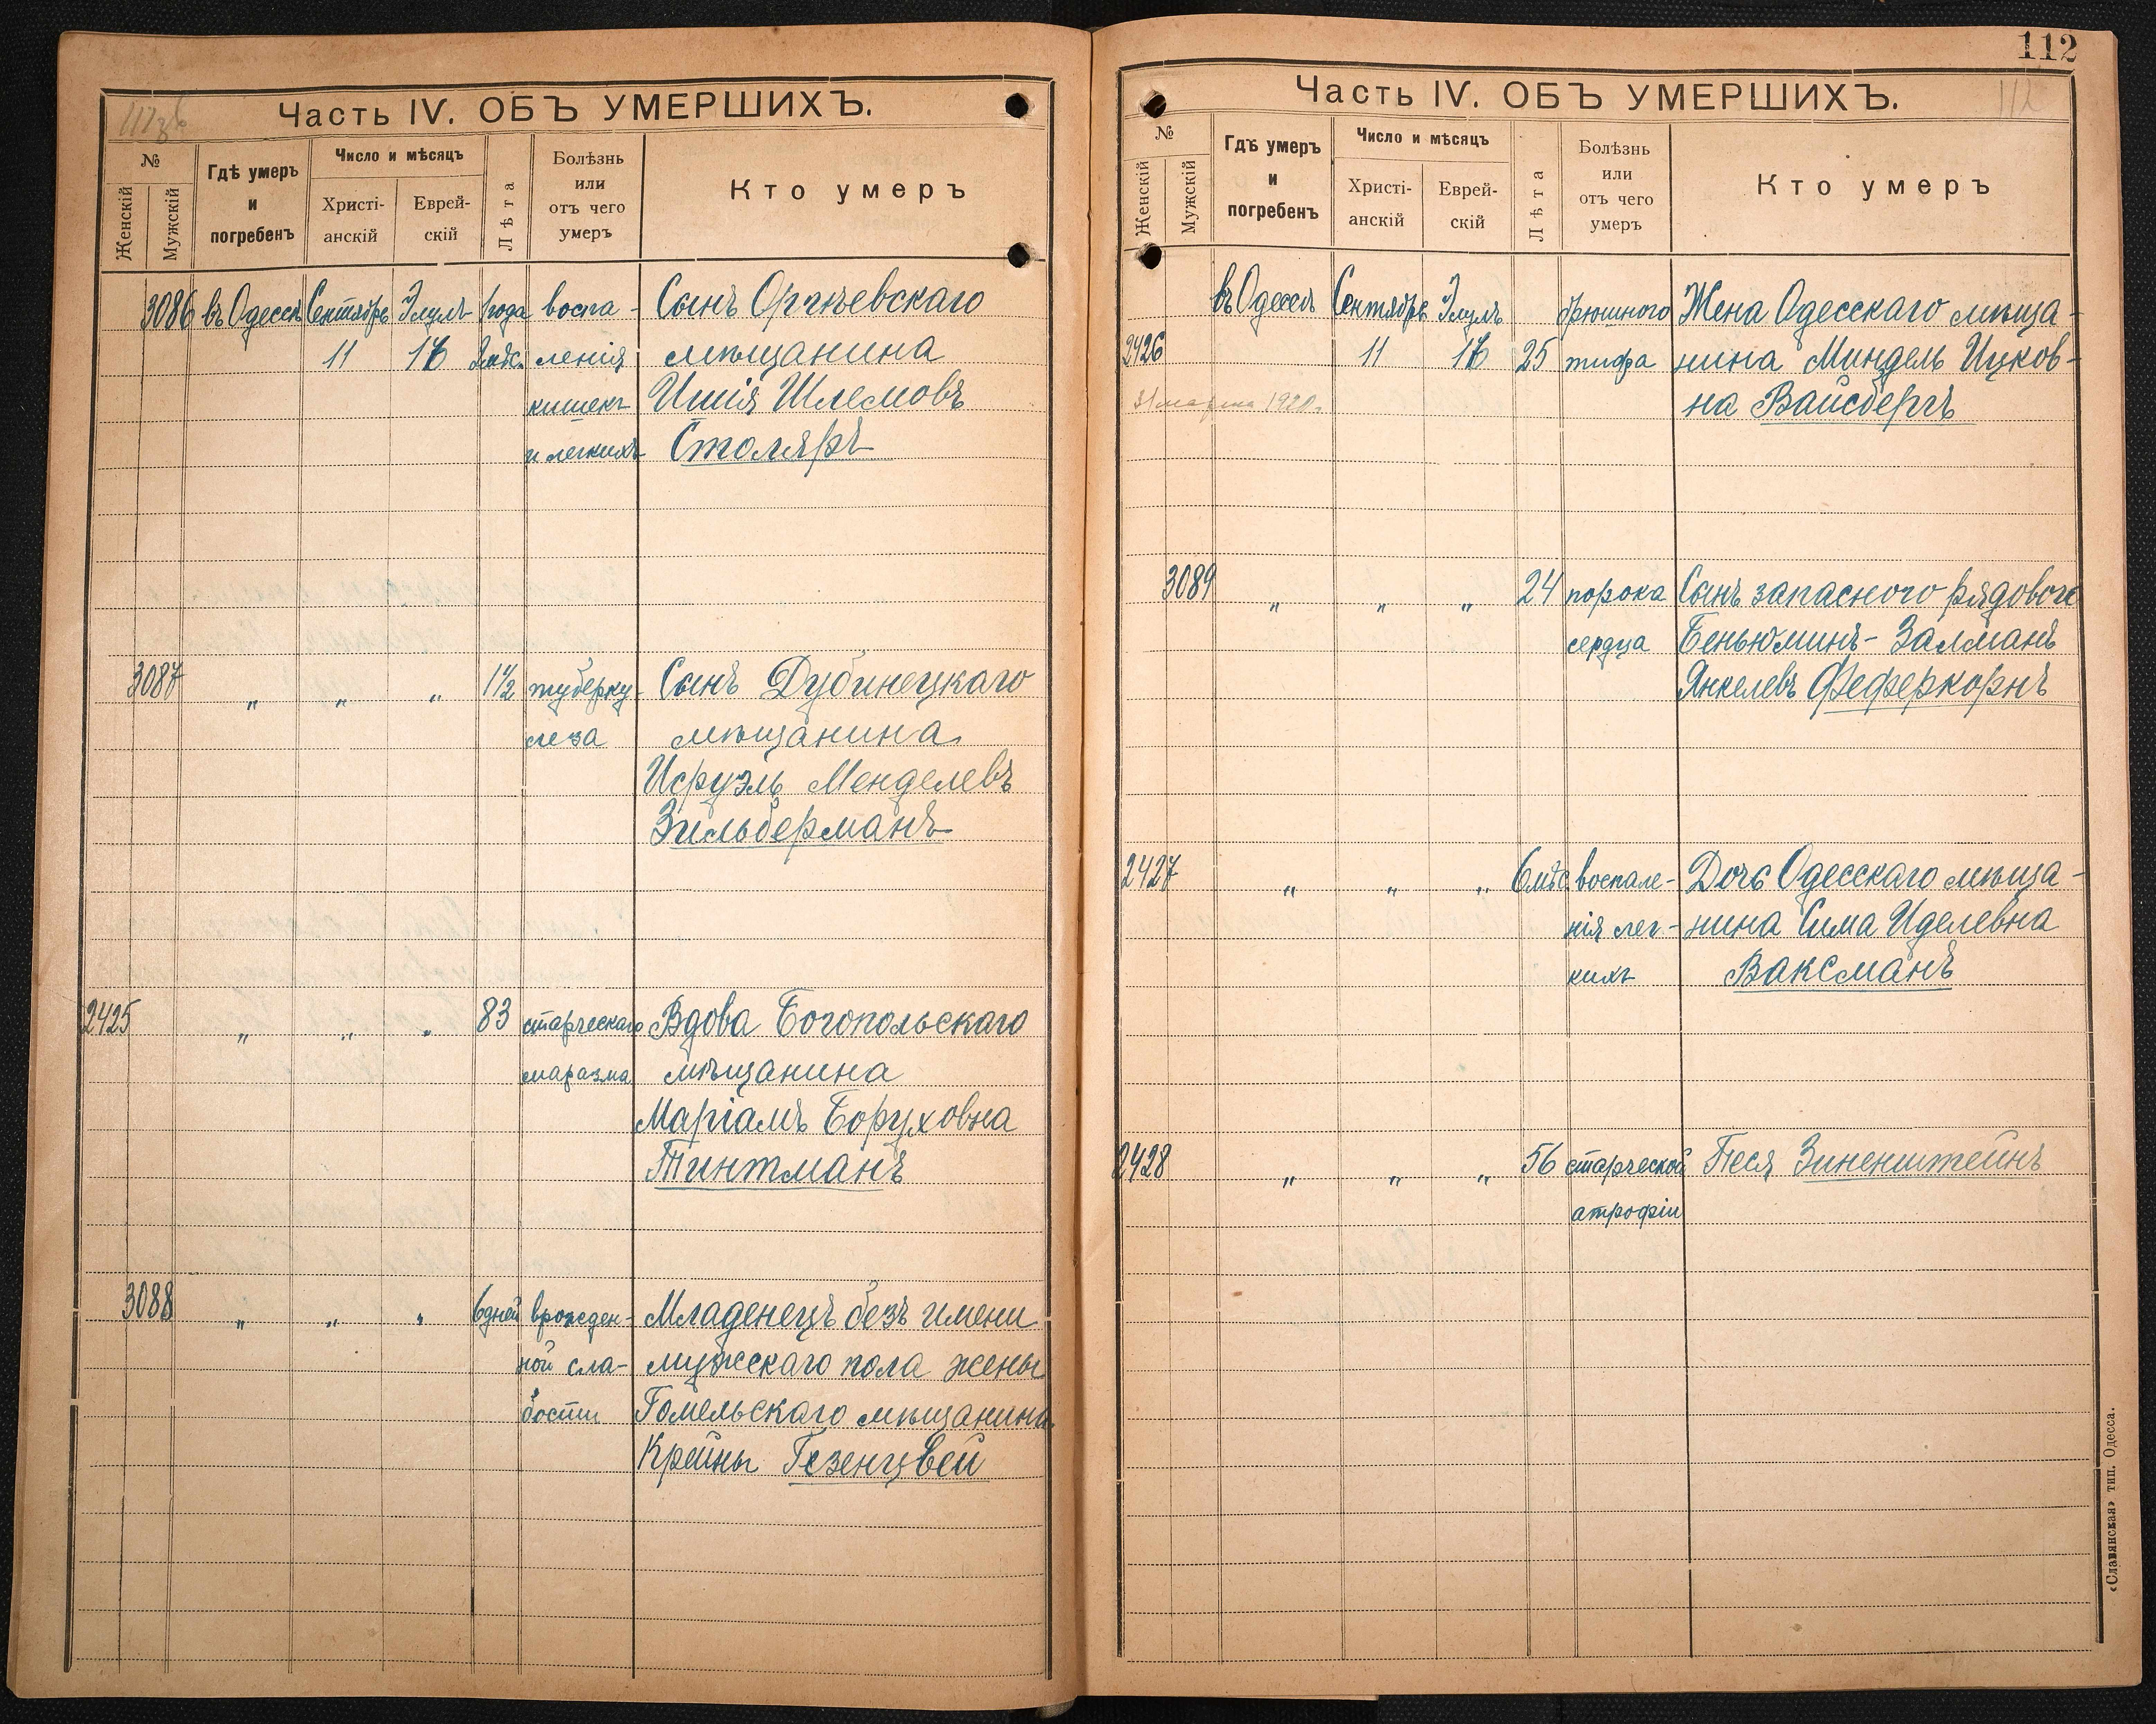 Часть IV. ОБЪ УМЕРШИХЪ.
№
Женскій
Мужскій
Гдѣ умеръ
и
погребенъ
Число и мѣсяцъ
Христі-
анскій
Еврей-
скій
Лѣта
Болѣзнь
или
отъ чего
умеръ
Кто умеръ
3086 въ Одессѣ Сентябрь Элулъ 1 года воспа- Сынъ Оргѣевскаго
11 ленія мѣщанина
кишекъ Ишія Шлемовъ
и легкихъ Столяръ
3087 „ „ „ 1½ туберку- Сынъ Дубинецкаго
леза мѣщанина
Исруэль Менделевъ
Зильберманъ
2425 „ „ „ 83 старческаго Вдова Богопольскаго
маразма мѣщанина
Маріамъ Боруховна
Тинтманъ
3088 „ „ „ 6 дней врожден- Младенецъ безъ имени
ной сла- мужескаго пола жены
бости Гомельскаго мѣщанина
Крейны Гезенцвей
112
112
Часть IV. ОБЪ УМЕРШИХЪ.
№
Женскій
Мужскій
Гдѣ умеръ
и
погребенъ
Число и мѣсяцъ
Христі-
анскій
Еврей-
скій
Лѣта
Болѣзнь
или
отъ чего
умеръ
Кто умеръ
въ Одессѣ Сентябрь Элулъ брюшного Жена Одесскаго мѣща-
2426 11 25 тифа нина Миндель Ицков-
31 марта 1920 г. на Вайсбергъ
3089 „ „ „ 24 порока Сынъ запасного рядового
сердца Беньюминъ-Залманъ
Янкелевъ Феферкорнъ
2427 „ „ „ 6 мѣс. воспале- Дочь Одесскаго мѣща-
нія лег- нина Сима Иделевна
кихъ Ваксманъ
2428 „ „ „ 56 старческой Песя Зиненштейнъ
атрофіи
«Славянская» тип. Одесса.